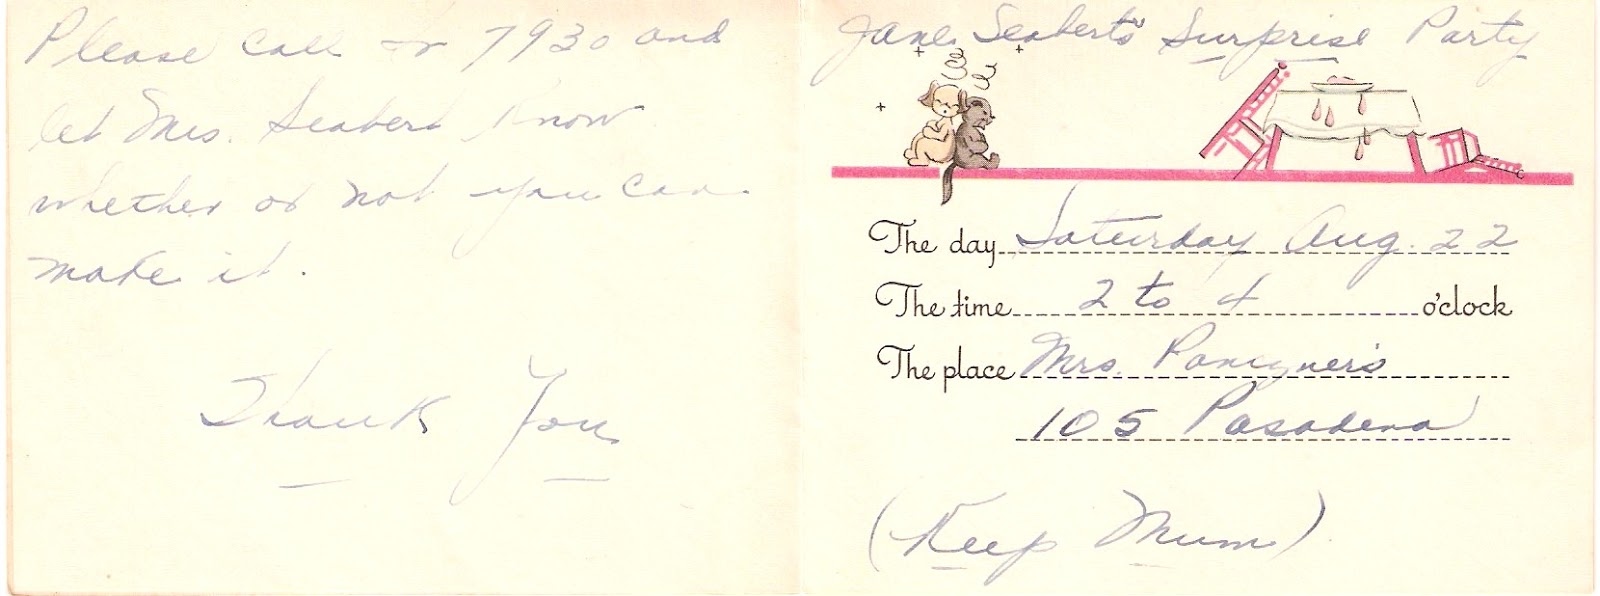 Please call 7930 and
let Mrs. Seabert know
whether or not you can
make it.
Thank You
Jane Seabert's Surprise Party
The day Saturday Aug. 22
The time 2 to 4 o'clock
The place Mrs.
105 Pasadena
(Keep Mum)